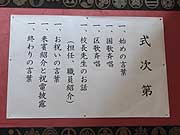 式次第
一、始めの言葉
一、国歌斉唱
一、区歌斉唱
一、校長先生のお話
（担任・職員紹介）
一、お祝いの言葉
一、来賓紹介と祝電披露
一、終わりの言葉